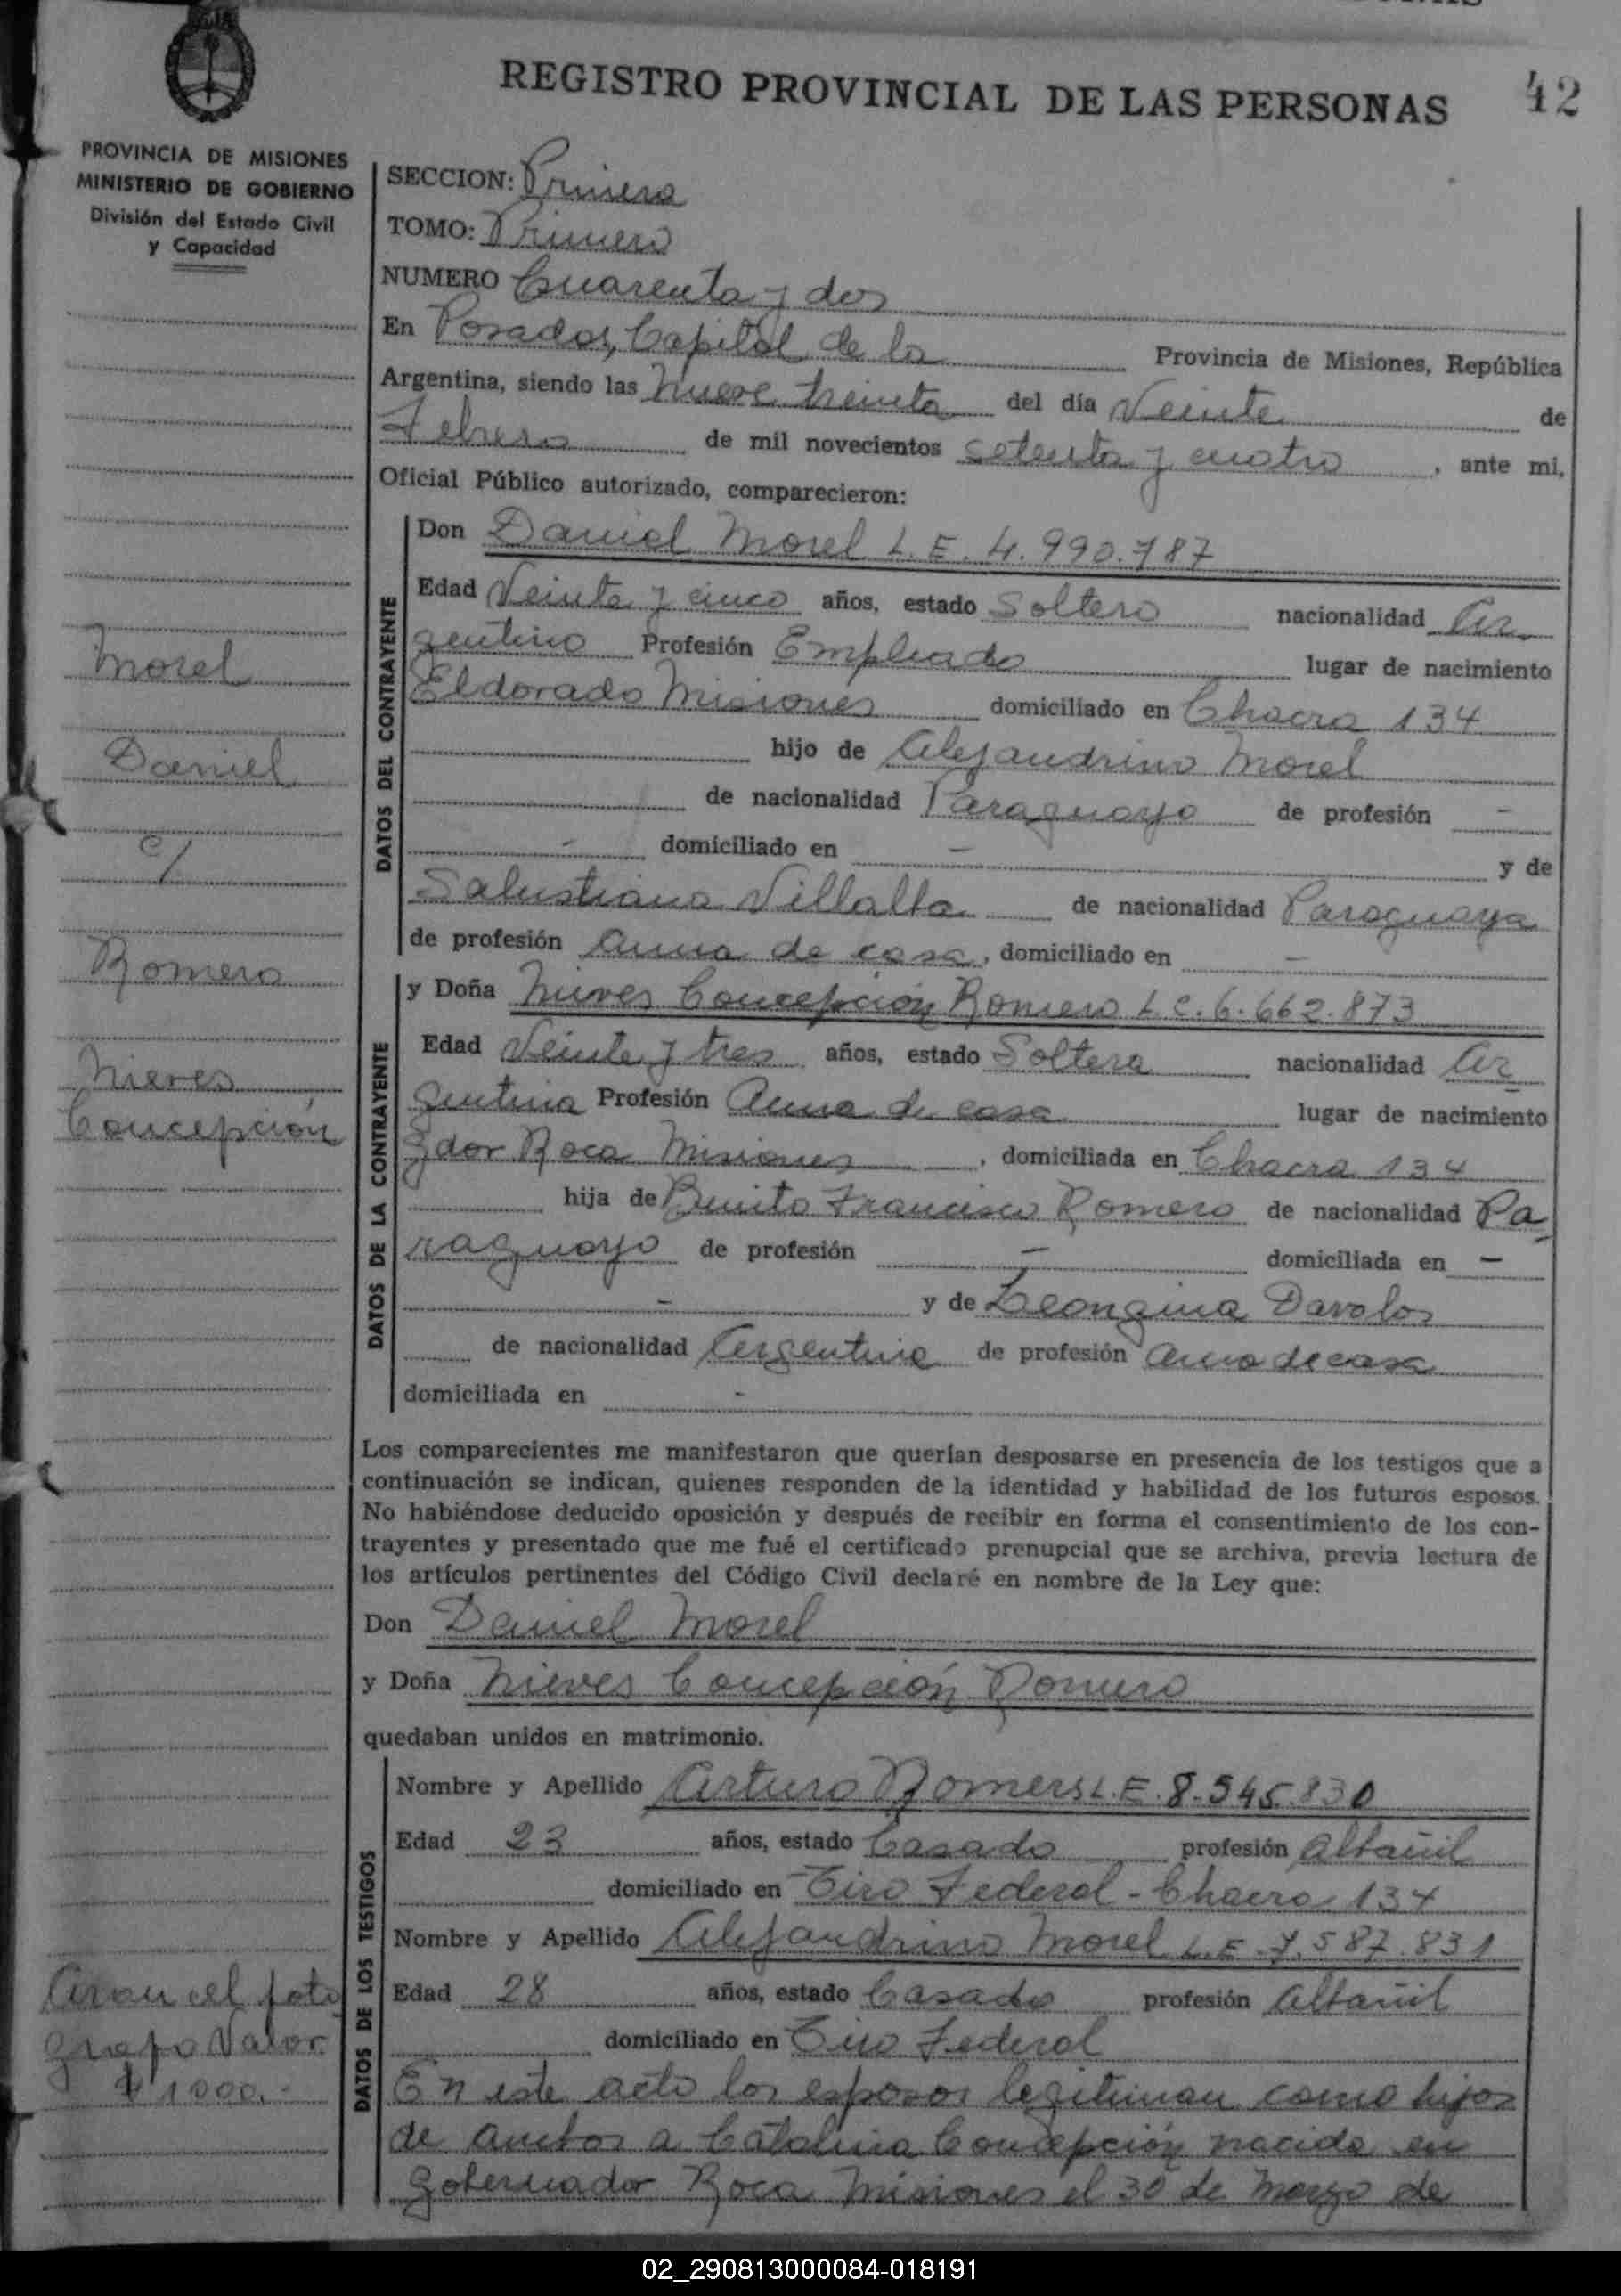 REGISTRO PROVINCIAL DE LAS PERSONAS 42
PROVINCIA DE MISIONES
MINISTERIO DE GOBIERNO
División del Estado Civil
y Capacidad
SECCION: Primera
TOMO: Primero
NUMERO Cuarenta y dos
En Posadas, Capital de la Provincia de Misiones, República
Argentina, siendo las nueve treinta del día Veinte de
Febrero de mil novecientos setenta y cuatro, ante mi,
Oficial Público autorizado, comparecieron:
DATOS DEL CONTRAYENTE
Don Daniel Morel L.E. 4.990.787
Edad Veinte y cinco años, estado Soltero nacionalidad Ar-
gentino Profesión Empleado lugar de nacimiento
Eldorado Misiones domiciliado en Chacra 134
hijo de Alejandrino Morel
de nacionalidad Paraguayo de profesión -
- domiciliado en - y de
Salustiana Villalta de nacionalidad Paraguaya
de profesión ama de casa, domiciliado en -
DATOS DE LA CONTRAYENTE
y Doña Nieves Concepción Romero L.C. 6.662.873
Edad Veinte y tres años, estado Soltera nacionalidad Ar-
gentina Profesión Ama de casa lugar de nacimiento
Gdor Roca Misiones, domiciliada en Chacra 134
hija de Benito Francisco Romero de nacionalidad Pa-
raguayo de profesión - domiciliada en -
- y de Leongina Davalos
de nacionalidad Argentina de profesión ama de casa
domiciliada en -
Los comparecientes me manifestaron que querían desposarse en presencia de los testigos que a
continuación se indican, quienes responden de la identidad y habilidad de los futuros esposos.
No habiéndose deducido oposición y después de recibir en forma el consentimiento de los con-
trayentes y presentado que me fué el certificado prenupcial que se archiva, previa lectura de
los artículos pertinentes del Código Civil declaré en nombre de la Ley que:
Don Daniel Morel
y Doña Nieves Concepción Romero
quedaban unidos en matrimonio.
DATOS DE LOS TESTIGOS
Nombre y Apellido Arturo Romero L.E. 8.545.830
Edad 23 años, estado Casado profesión Albañil
domiciliado en Tiro Federal - Chacra 134
Nombre y Apellido Alejandrino Morel L.E. 7.587.831
Edad 28 años, estado Casado profesión Albañil
domiciliado en Tiro Federal
En este acto los esposos legitiman como hijos
de ambos a Catalina Concepción nacida en
Gobernador Roca Misiones el 30 de Marzo de
Morel
Daniel
c/
Romero
Nieves
Concepción
Arancel foto
grafo Valor
$ 1000.-
02_290813000084-018191